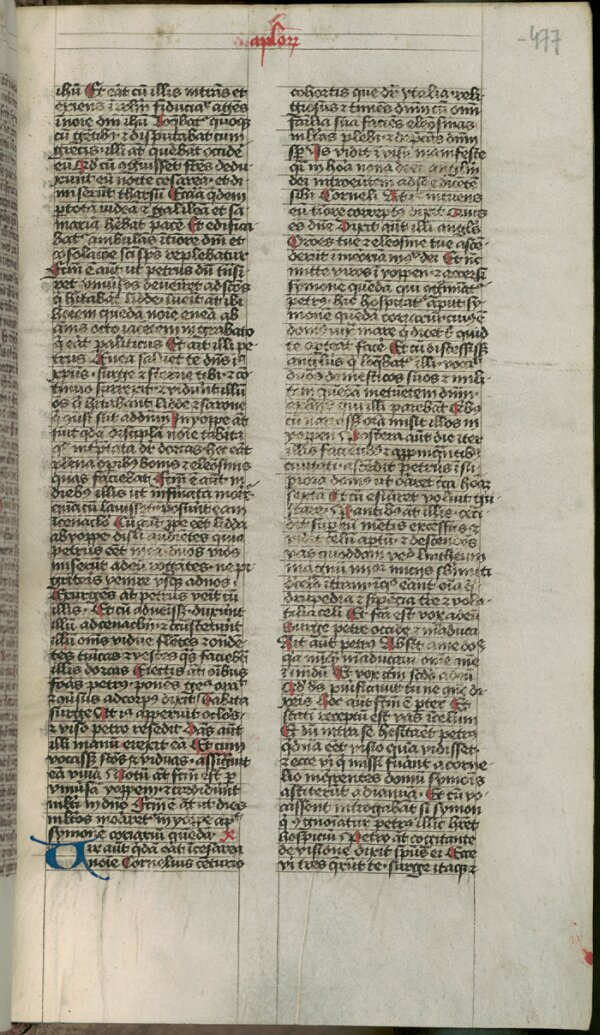 aplorꝝ
477
ihū Et eāt cū illis intrās et
exiens ī irłm fiducial agēs
ī noīe dnī ihū Loqbat quoqꝫ
cū getibꝫ ⁊ disputabat cum
grecis illi at quebāt occide
eū Qd cū ꝯguissēt frēs dedu
xerunt eū nocte cesarea et di
miserūt tharsū Ecclīa qdem
ptotā iudea ⁊ galilea et sa
maria hēbat pacē Et edifica
bat ambulās ī tiore dnī et
ꝯsolatōe scī sps replebatur
ret vniūsos deueniret ad scōs
q hitabāt lidde Inueīt at ibi
hoiem quedā noīe eneā ab
ānis octo iacētem in grabato
q eat paliticus Et ait illi pe
trus Enea sanet te dns ih
xpus surge ⁊ sterne tibi et cō
tinuo surrexit ⁊ viderūt illū
oēs q hitabant lidde ⁊ sarone
q ꝯūsi sūt ad dnm In yoppe at
fuit qdā discipla noīe tabita
q intptata dr dorcas hec eāt
plena opibꝫ bonis ⁊ elosinis
quas faciebat Fcm ē aūt in
diebꝫ illis ut infirmata more
quā cū lauisset posuerūt eam
ī cenaclo Cū aūt ppe eēt lidda
ab yoppe discli audietes quia
petrus eēt in ea duos viros
miserūt ad eū rogātes ne pi
griteris venire vsqꝫ ad nos
Exurges āt petrus veīt cū
illis Et cū aduenissꝫ duxerūt
illū ad cenaclm ⁊ circūsteterūt
illū ōnis vidue flētes ⁊ ondē
tes tunicas ⁊ vestes qs faciebat
illis dorcas Eiectis āt oībus
foras petrus ponēs gēa orāt
⁊ ꝯuersus ad corpus dixit Tabita
surge At illa apperuit oclos
⁊ viso petro resedit Dās aūt
illi manū erexit eā Et cum
vocassꝫ scōs ⁊ viduas assignīt
eā viuā Notū āt fcm est p
vniūsā yoppem ⁊ crediderūt
mlti in dno Fcm ē āt ut dies
mltos moraret in yoppe apd
symonē coriariū quedā X
Uir aūt qdā eāt ī cesarea
noīe Cornelius cēturio
cohortis que dr ytalia reli
giosus ⁊ timēs dnm cū omī
familia sua faciēs elosinas
mltas plebi ⁊ depcās dnm
sp Is vidit ī visu manifeste
qi in hoā nona diei angelm
dei introeutem ad se ⁊ dicete
sibi Corneli At ille intuens
eū tiore correptus dixit Quis
es dne Dixit aūt illi angls
Oroēs tue ⁊ elosine tue ascē
derūt ī mēoria in ꝯspu dei Et nūc
mitte viros ī yoppen ⁊ acersi
symonē quedā qui cognoīat
petrus hic hospitat apud sy
monē quedā coriariū cuius ē
domus iux mare q dicet tꝫ quid
te opteat facē Et cū discessissꝫ
anglus q loqbat illi vocait
duos domesticos suos ⁊ mili
tem quedā metuetem dnm
ex hiis qui illi parebāt Qibꝫ
cū narassꝫ oīa misit illos in
yoppen Postera aūt die iter
illis faciētibꝫ ⁊ apppinqntibꝫ
ciuitati ascēdit petrus ī su
piora domus ut oraret cca horā
sexta Et cū esuriret voluit gu
stare Parantibꝫ āt illis ceci
dit sup eū mētis excessus ⁊
vidit celū aptū ⁊ descendēs
vas quoddam velud lintheum
magnū iiiior iniciis submitti
de celo ī terram ī quo eant oīa q
drupedia ⁊ serpencia tre ⁊ vola
tilia celi Et fca est vox ad eū
Surge petre occide ⁊ māduca
Ait aūt petrus Absit dne quia
qa nūqm māducaui omē cōe
⁊ īmūdū Et vox itm scdo ad eū
Qd ds purificauit tu ne cōe di
xeris Hoc aūt fcm ē p ter Et
statī receptū est vas ī celum
Et dū intra se hesitaret petrus
qdnā eēt visio quā vidissꝫ
⁊ ecce viri q missi fuerāt a corne
lio inqrentes domū symonis
astiterūt ad ianuā Et cū vo
cassent introgabāt si symon
q ꝯgnoīatur petrus illic hret
hospiciū Petro āt cogitante
de visione dixit spus ei Ecce
viri tres querūt te surge itaqꝫ ⁊